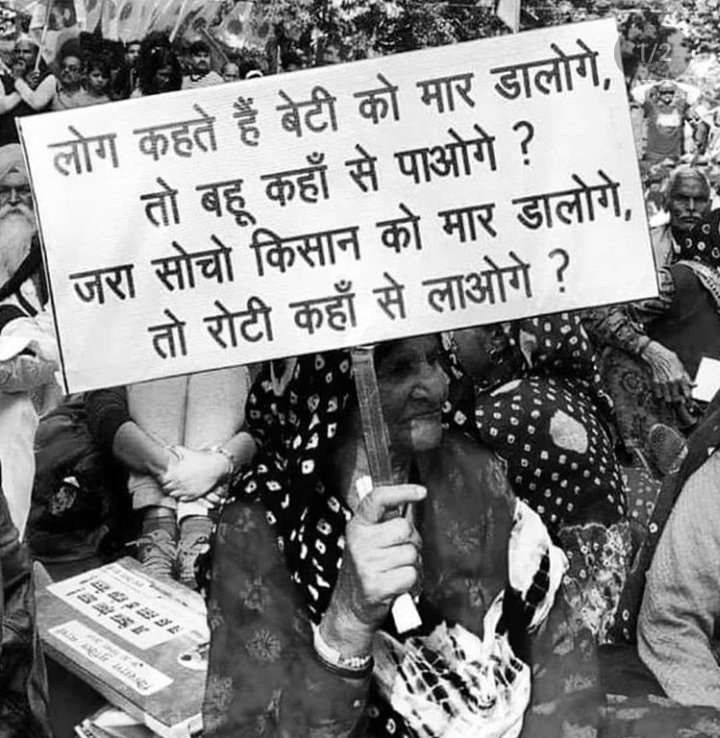 लोग कहते हैं बेटी को मार डालोगे,
तो बहू कहाँ से पाओगे ?
जरा सोचो किसान को मार डालोगे,
तो रोटी कहाँ से लाओगे ?
1/2